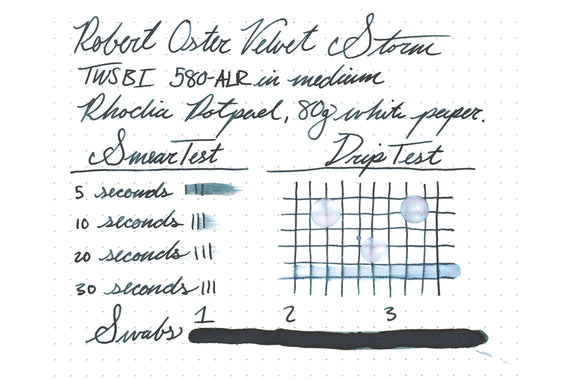 Robert Oster Velvet Storm
TWSBI 580-ALR in medium
Rhodia Dotpad, 80g white paper.
Smear Test
Drip Test
5 seconds
10 seconds
20 seconds
30 seconds
Swabs
1 2 3